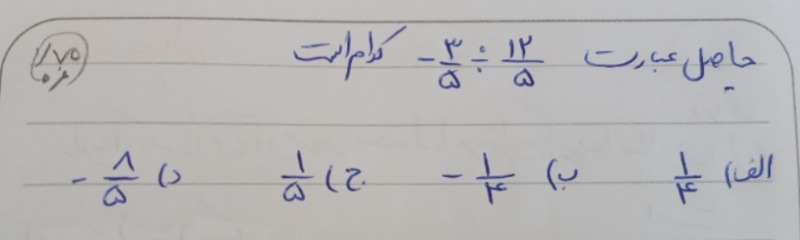 حاصل عبارت -۳/۵ ÷ ۱۲/۵ کدام است
۰/۷۵ نمره
الف) ۱/۴ ب) -۱/۴ ج) ۱/۵ د) -۸/۵